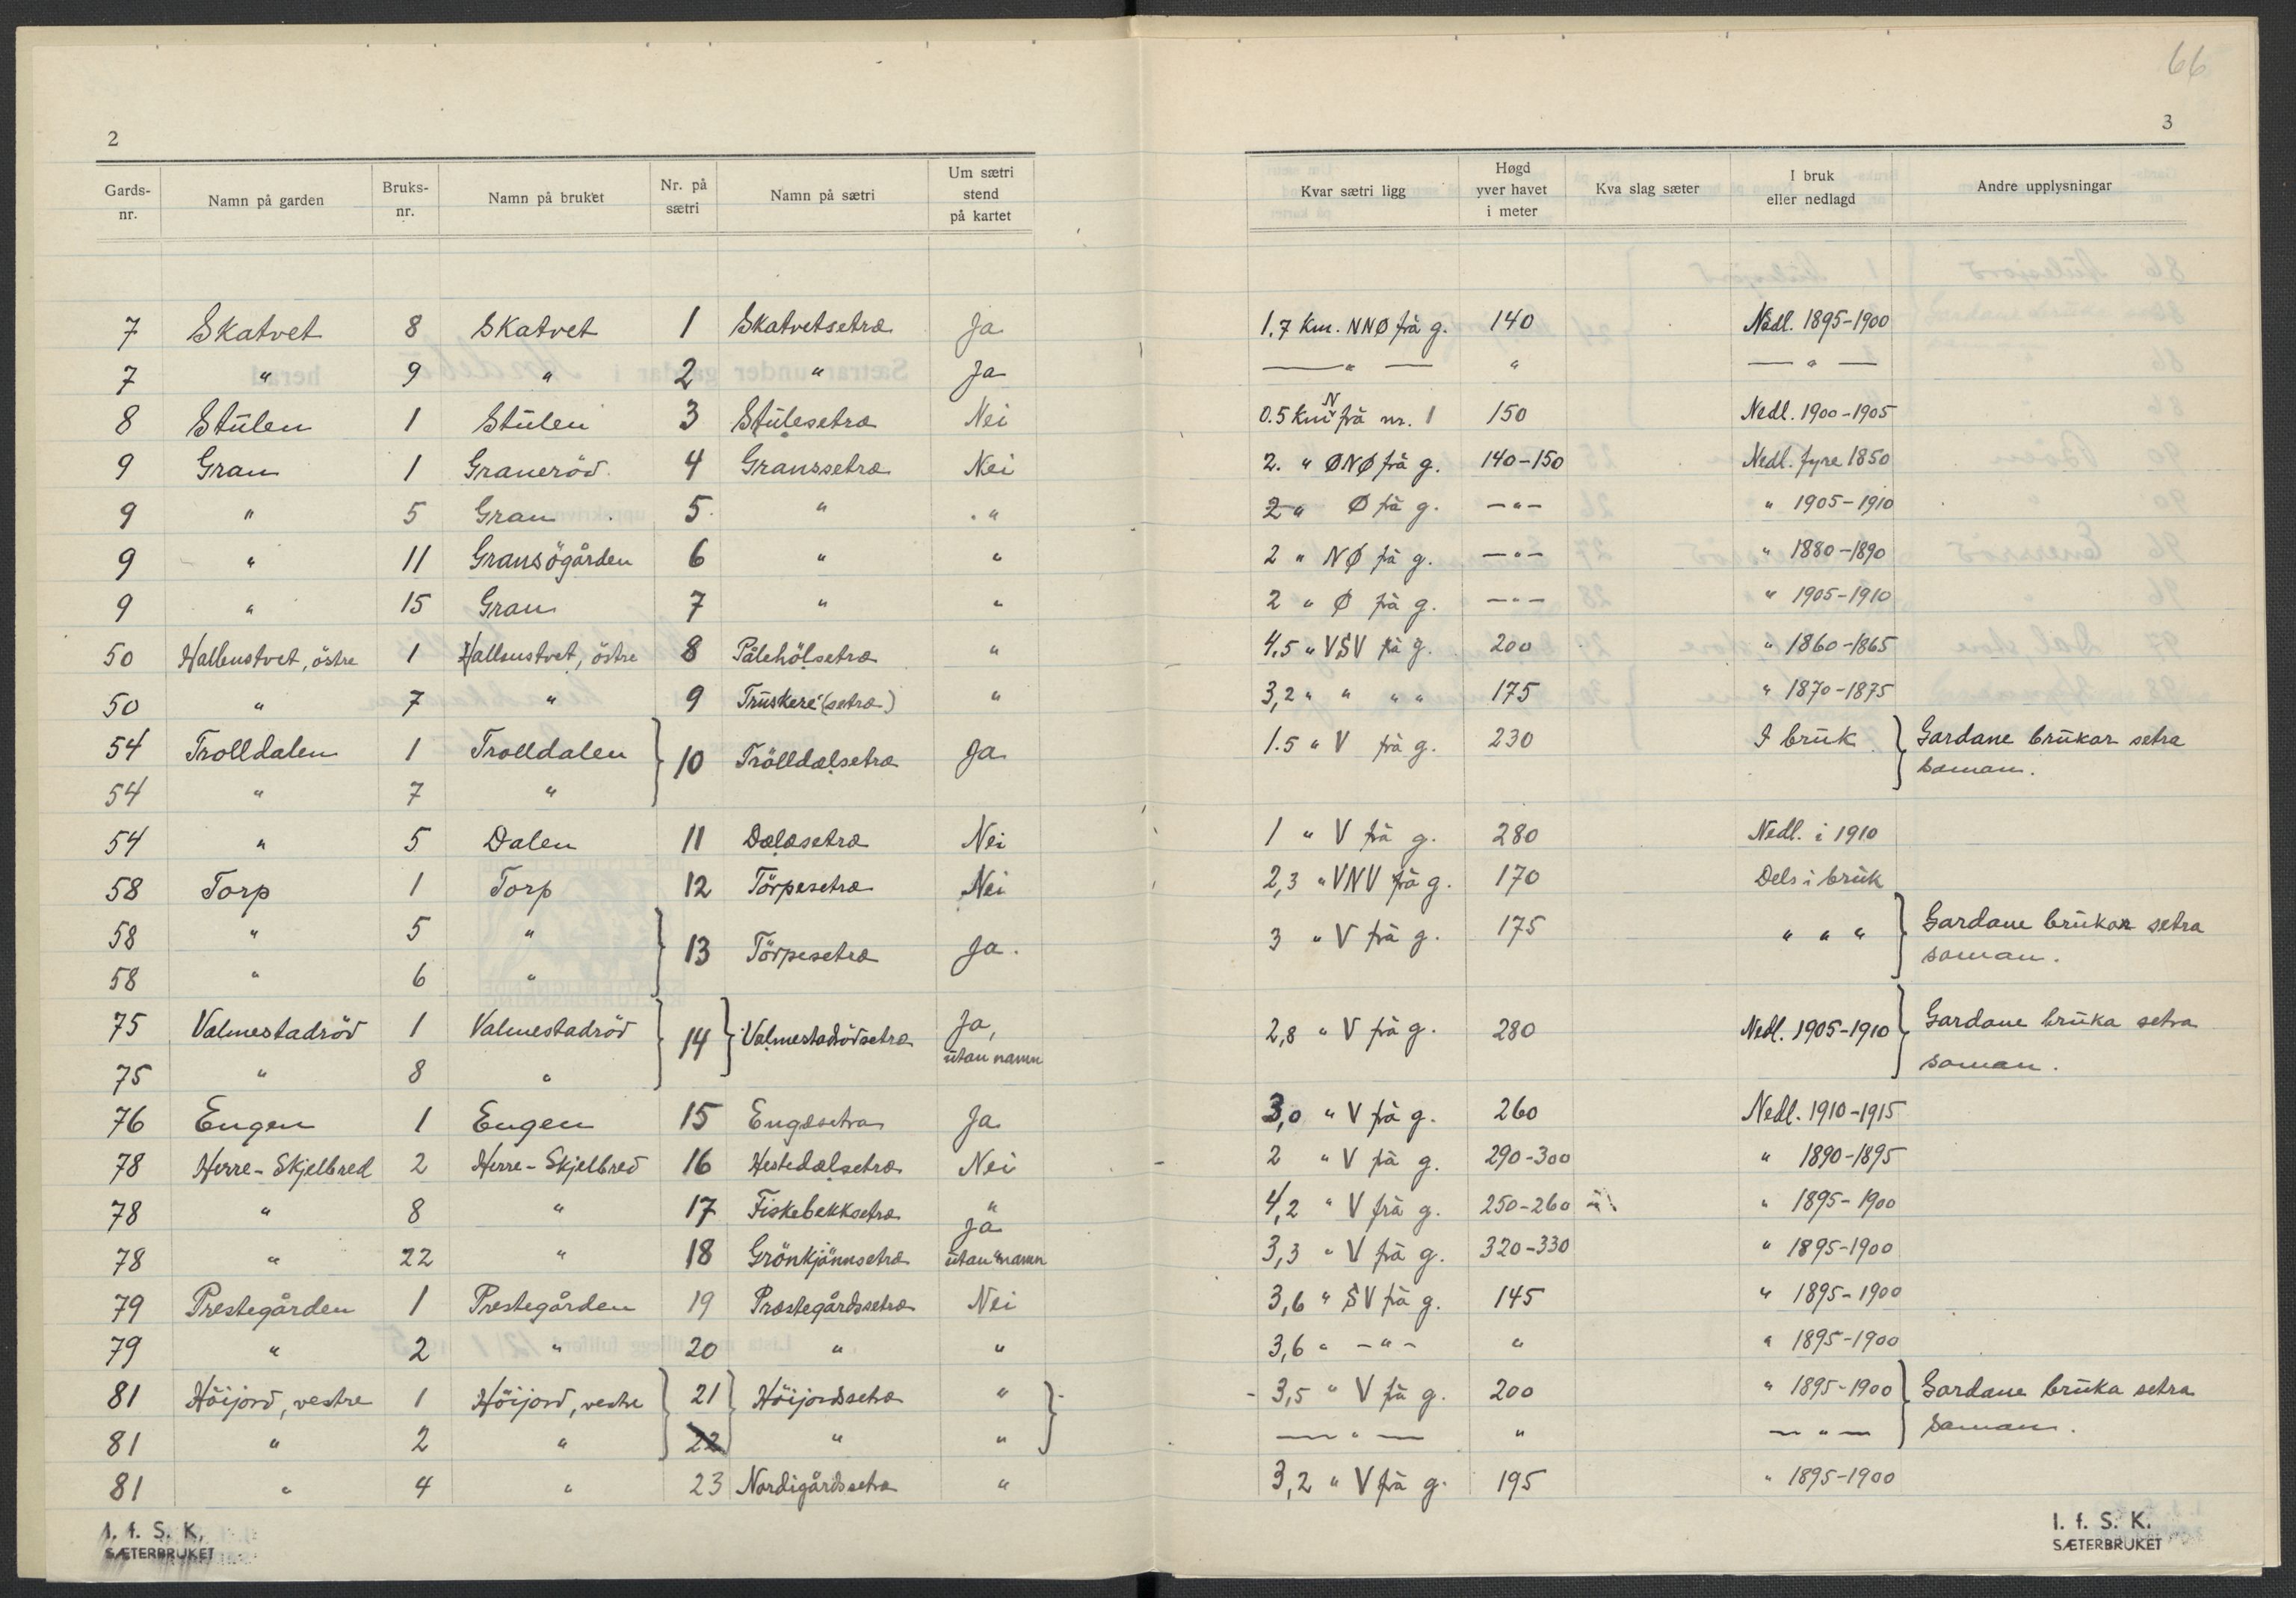 66
2
Gards-nr. Namn på garden Bruks-nr. Namn på bruket Nr. på sætri Namn på sætri Um sætri stend på kartet
7 Skatvet 8 Skatvet 1 Skatvetsetra Ja
7 " 9 " 2 " Ja
8 Stulen 1 Stulen 3 Stulesetra Nei
9 Gran 1 Graneröd 4 Granssetra Nei
9 " 5 Gran 5 " "
9 " 11 Gransögården 6 " "
9 " 15 Gran 7 " "
50 Hallenstvet, östre 1 Hallenstvet, östre 8 Pålehölsetra "
50 " 7 " 9 Truskere (setra) "
54 Trolldalen 1 Trolldalen } 10 Trölldalsetra Ja
54 " 7 "
54 " 5 Dalen 11 Dalasetra Nei
58 Torp 1 Torp 12 Törpesetra Nei
58 " 5 " } 13 Törpesetra Ja.
58 " 6 "
75 Valmestadröd 1 Valmestadröd } 14 } Valmestadrödsetra Ja, utan namn
75 " 8 "
76 Engen 1 Engen 15 Engesetra Ja
78 Herre-Skjelbred 2 Herre-Skjelbred 16 Hestedalsetra Nei
78 " 8 " 17 Fiskebekksetra "
78 " 22 " 18 Grönkjönnsetra Ja utan namn
79 Prestegården 1 Prestegården 19 Prestegårdssetra Nei
79 " 2 " 20 " "
81 Höijord, vestre 1 Höijord, vestre } 21 } Höijordssetra " }
81 " 2 " 22 " "
81 " 4 " 23 Nordigårdssetra "
I. f. S. K.
SÆTERBRUKET
3
Kvar sætri ligg Høgd yver havet i meter Kva slag sæter I bruk eller nedlagd Andre upplysningar
1.7 Km. NNØ frå g. 140 Nedl. 1895-1900
— " — " — " —
0.5 Km N frå nr. 1 150 Nedl. 1900-1905
2. " ØNØ frå g. 140-150 Nedl. fyre 1850
2 " Ø frå g. —"— " 1905-1910
2 " NØ frå g. —"— " 1880-1890
2 " Ø frå g. —"— " 1905-1910
4,5 " VSV frå g. 200 " 1860-1865
3,2 " " " " 175 " 1870-1875
1.5 " V frå g. 230 I bruk } Gardane brukar setra
saman.
1 " V frå g. 280 Nedl. i 1910
2,3 " VNV frå g. 170 Dels i bruk
3 " V frå g. 175 " " " } Gardane brukar setra
saman.
2,8 " V frå g. 280 Nedl. 1905-1910 } Gardane bruka setra
saman.
3,0 " V frå g. 260 Nedl. 1910-1915
2 " V frå g. 290-300 " 1890-1895
4,2 " V frå g. 250-260 " 1895-1900
3,3 " V frå g. 320-330 " 1895-1900
3,6 " SV frå g. 145 " 1895-1900
3,6 " — " — " " 1895-1900
3,5 " V frå g. 200 " 1895-1900 } Gardane bruka setra
— " — " — " — saman.
3,2 " V frå g. 195 " 1895-1900
I. f. S. K.
SÆTERBRUKET